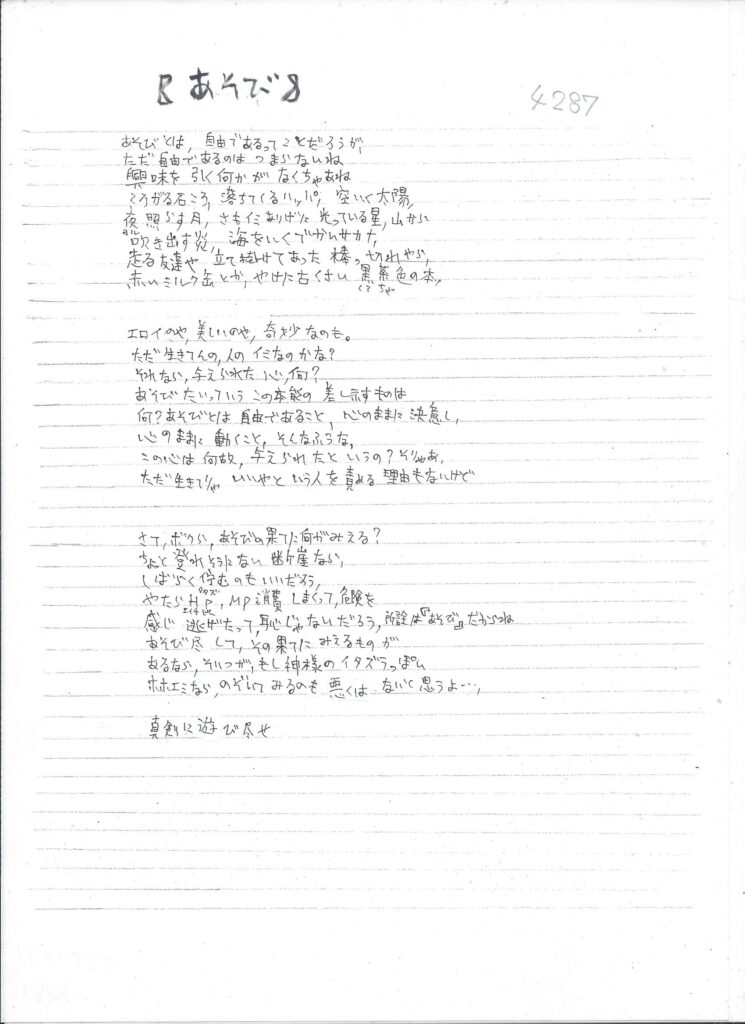 『あそび』
4287
あそびとは、自由であるってことだろうが、
ただ自由であるのは つまらないね
興味を引く何かが なくちゃあね
ころがる石ころ、落ちてくるハッパ、空いく太陽、
夜照らす月、さもイミありげに光っている星、山から
吹き出す炎、海をいくでかいサカナ、
走る友達や 立て掛けてあった棒っ切れやら、
赤いミルク缶とか、やけに古くさい 黒茶色の本、
くろちゃ
エロイのや、美しいのや、奇妙なのも。
ただ生きてんの、人のイミなのかな?
それなら、与えられた心、何?
あそびたいっていう この本能の差し示すものは
何?あそびとは 自由であること、心のままに 決意し、
心のままに 動くこと、そんなふうな。
この心は何故、与えられたというの?そりゃあ、
ただ生きてりゃ いいやと いう人を責める 理由もないけど
さて、ボクら、あそびの果てに何がみえる?
ちょっと登れそうにない 断崖なら、
しばらく佇むのもいいだろう、
タタズ
やたらHP、MP消費しまくって、危険を
感じ 逃げたって、恥じゃないだろう、所詮は『あそび』だからね
あそび尽して、その果てに みえるものが
あるなら、そいつが、もし神様のイタズラっぽい
ホホエミなら、のぞいてみるのも 悪くは ないと思うよ…、
真剣に遊び尽せ